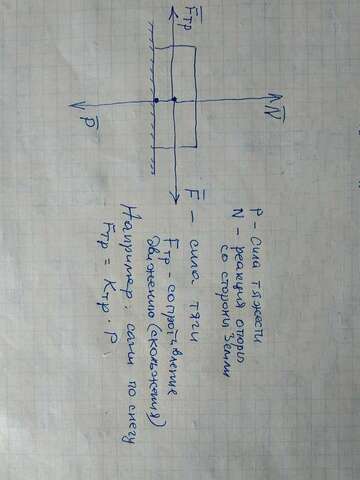 F̅тр
N̅
P̅
F̅ - сила тяги
P - сила тяжести
N - реакция опоры
со стороны Земли
Fтр - сопротивление
движению (скольжения)
Например: сани по снегу
Fтр = Kтр · P